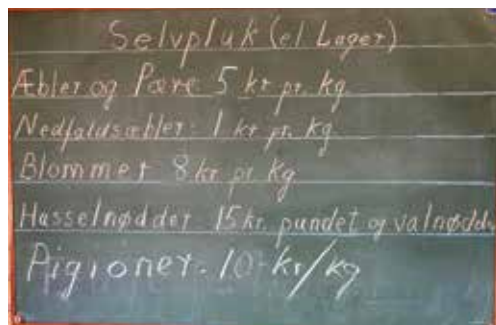 Selvpluk (el Lager)
Æbler og Pære 5 kr pr. kg
Nedfaldsæbler: 1 kr pr. kg
Blommer 8 kr pr kg
Hasselnødder 15 kr. pundet og valnødde
Pigioner. 10- kr/kg